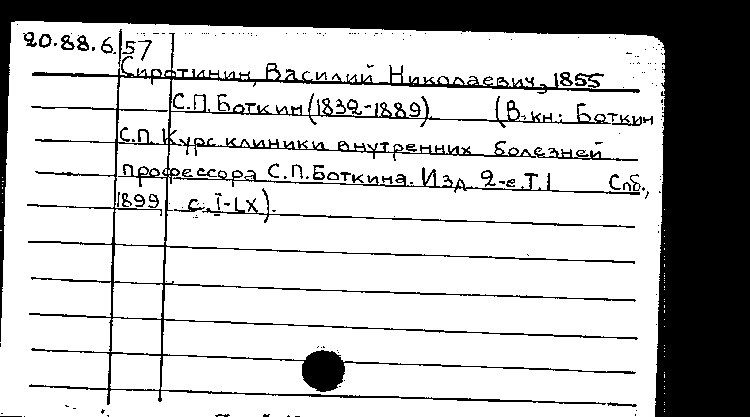 20.88.6.57
Сиротинин, Василий Николаевич, 1855
С.П. Боткин (1832-1889). (В кн: Боткин
С.П. Курс клиники внутренних болезней
профессора С.П. Боткина. Изд. 2-е. Т.1 Спб.,
1899, с. I-LX).